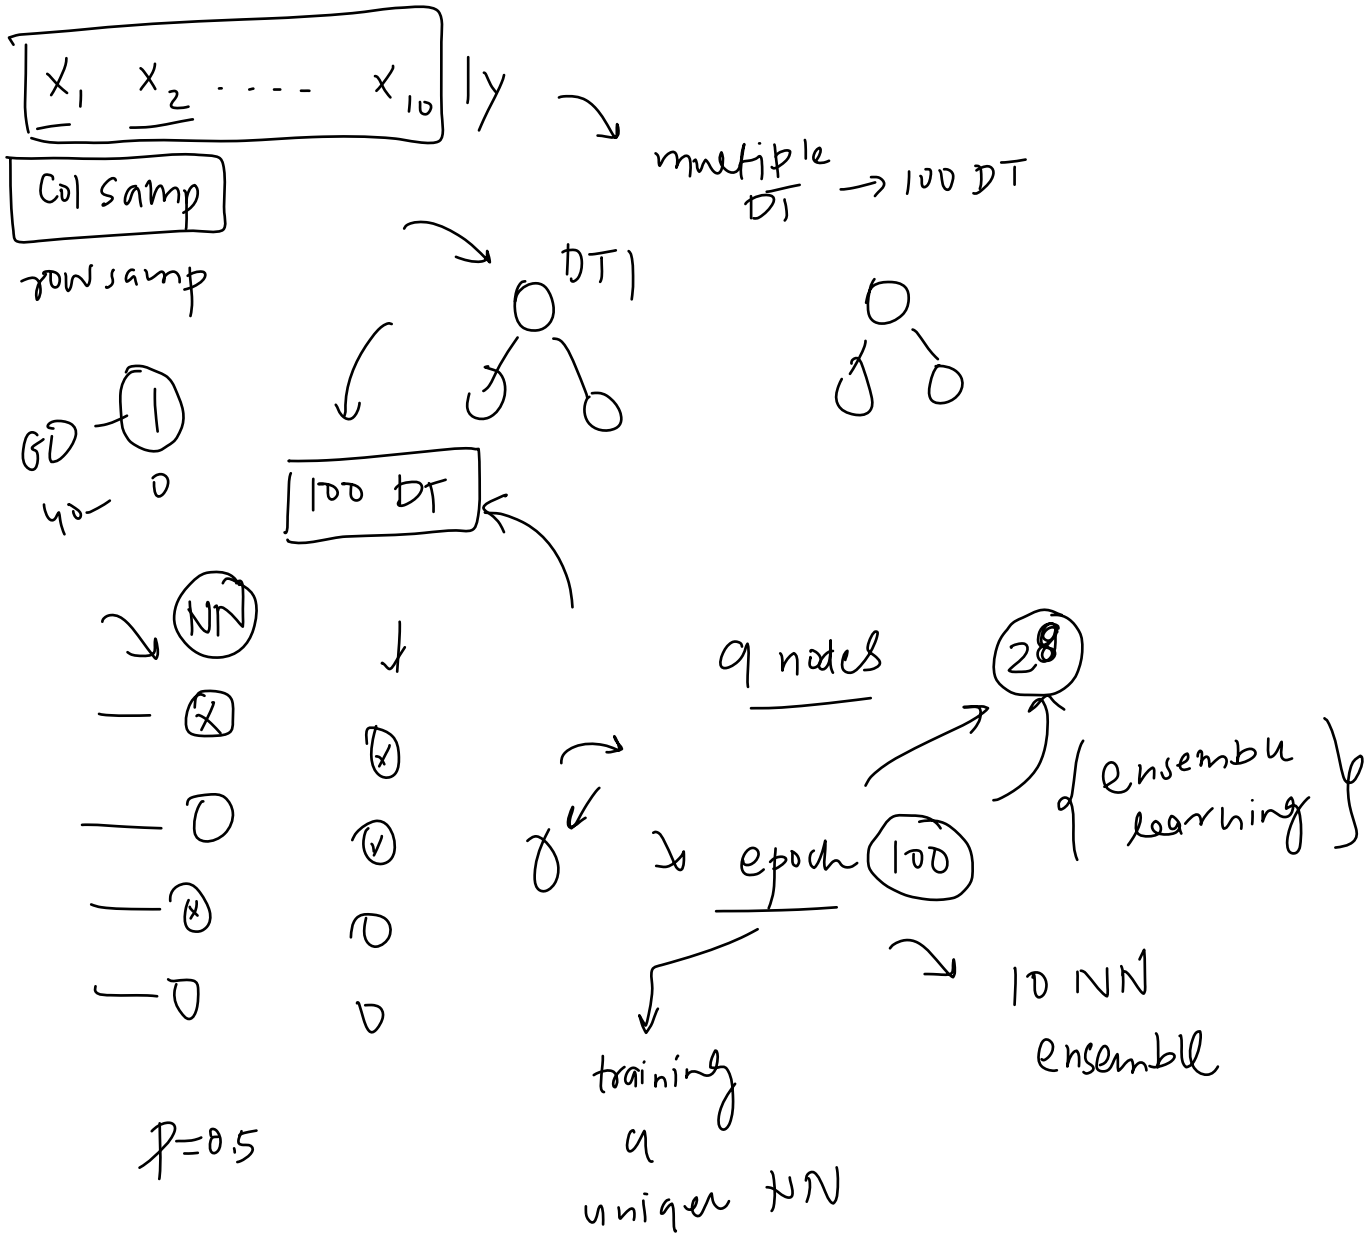 x1 x2 ..... x10 | y
Col samp
row samp
multiple
DT → 100 DT
DT1
60 - 1
40 - 0
100 DT
NN
9 nodes
ensemble
learning
epoch 100
10 NN
ensemble
training
a
unique NN
p=0.5